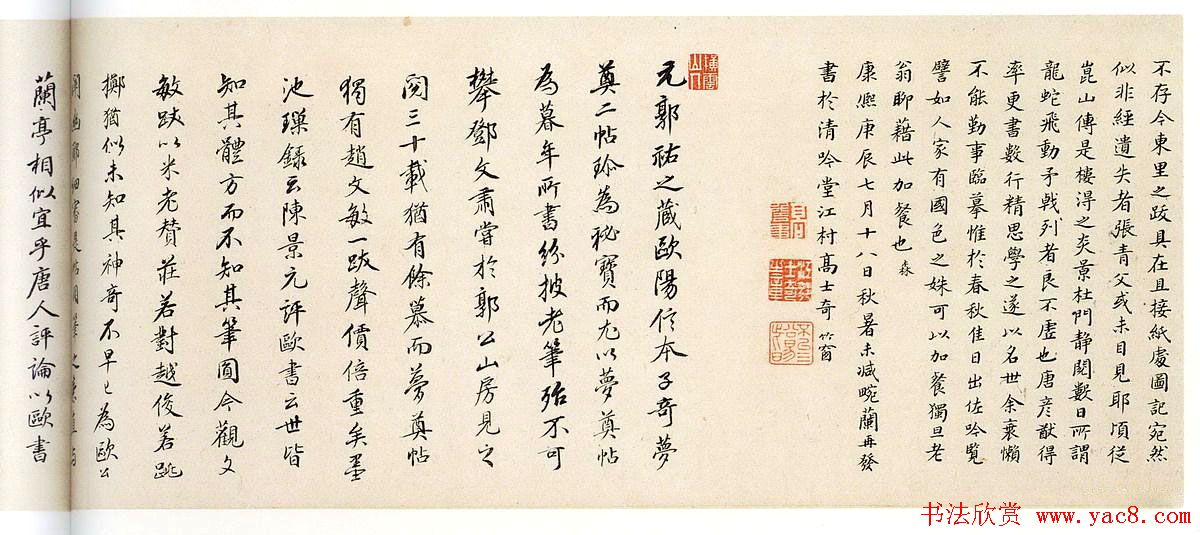 不存今東里之跋具在且接紙處圖記宛然
似非經遺失者張青父或未目見耶頃從
崑山傳是樓得之炎景杜門靜閱數日所謂
龍蛇飛動矛戟列者良不虛也唐彥猷得
率更書數行精思學之遂以名世余衰懶
不能勤事臨摹惟於春秋佳日出佐吟覽
譬如人家有國色之姝可以加餐獨旦老
翁聊藉此加餐也
康熙庚辰七月十八日秋暑未減畹蘭再發
書於清吟堂江村高士奇 竹窗
元郭祐之藏歐陽信本子奇夢
奠二帖珍為秘寶而尤以夢奠帖
為暮年所書紛披老筆殆不可
攀鄧文肅嘗於郭公山房見之
閱三十載猶有餘慕而夢奠帖
獨有趙文敏一跋聲價倍重矣墨
池璅錄云陳景元評歐書云世皆
知其體方而不知其筆圓今觀文
敏跋以米老贊莊若對越俊若跳
擲猶似未知其神奇不早已為歐公
蘭亭相似宜乎唐人評論以歐書
书法欣赏 www.yac8.com